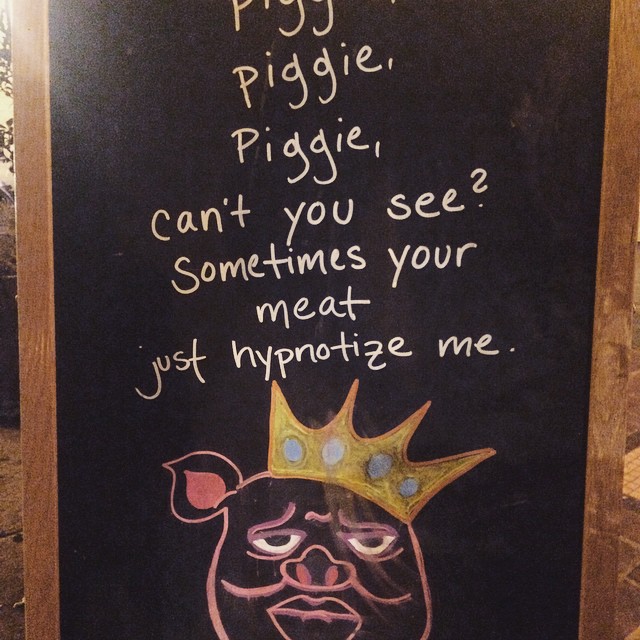 piggie,
Piggie,
can't you see?
Sometimes your
meat
just hypnotize me.